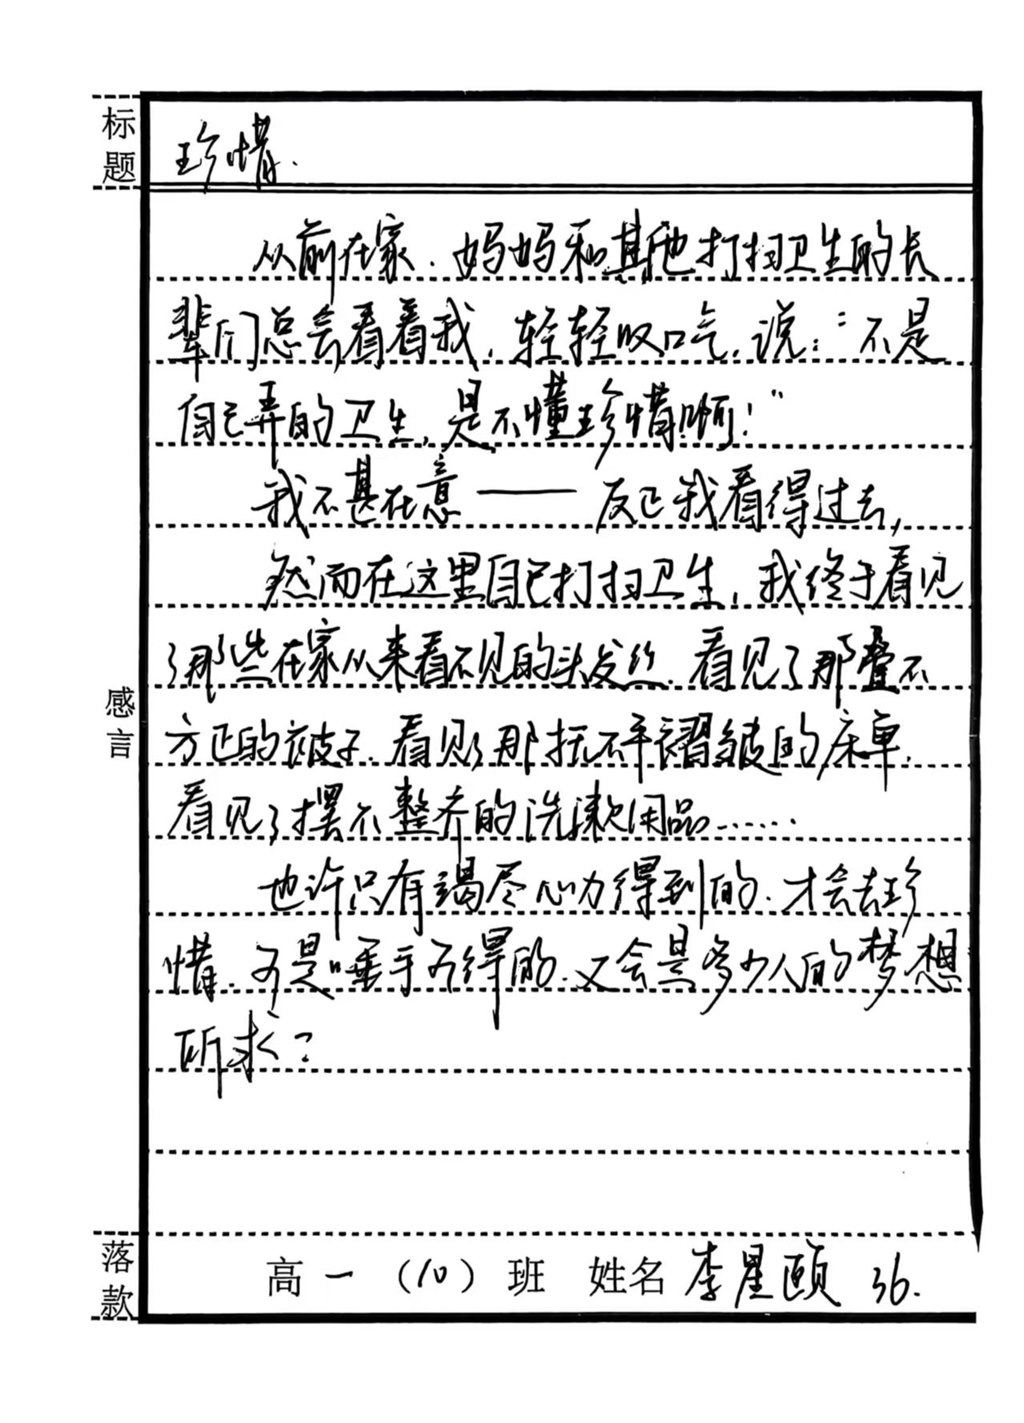 标题
珍惜.
从前在家.妈妈和其他打扫卫生的长
辈们总会看着我,轻轻叹口气,说:"不是
自己弄的卫生,是不懂珍惜啊!"
我不甚在意——反正我看得过去,
然而在这里自己打扫卫生,我终于看见
了那些在家从来看不见的头发丝.看见了那叠不
方正的被子.看见了那抚不平褶皱的床单.
看见了摆不整齐的洗漱用品......
感言
也许只有竭尽心力得到的.才会去珍
惜.可是唾手可得的.又会是多少人的梦想
所求?
落款
高一(10)班 姓名 李星颐 36.